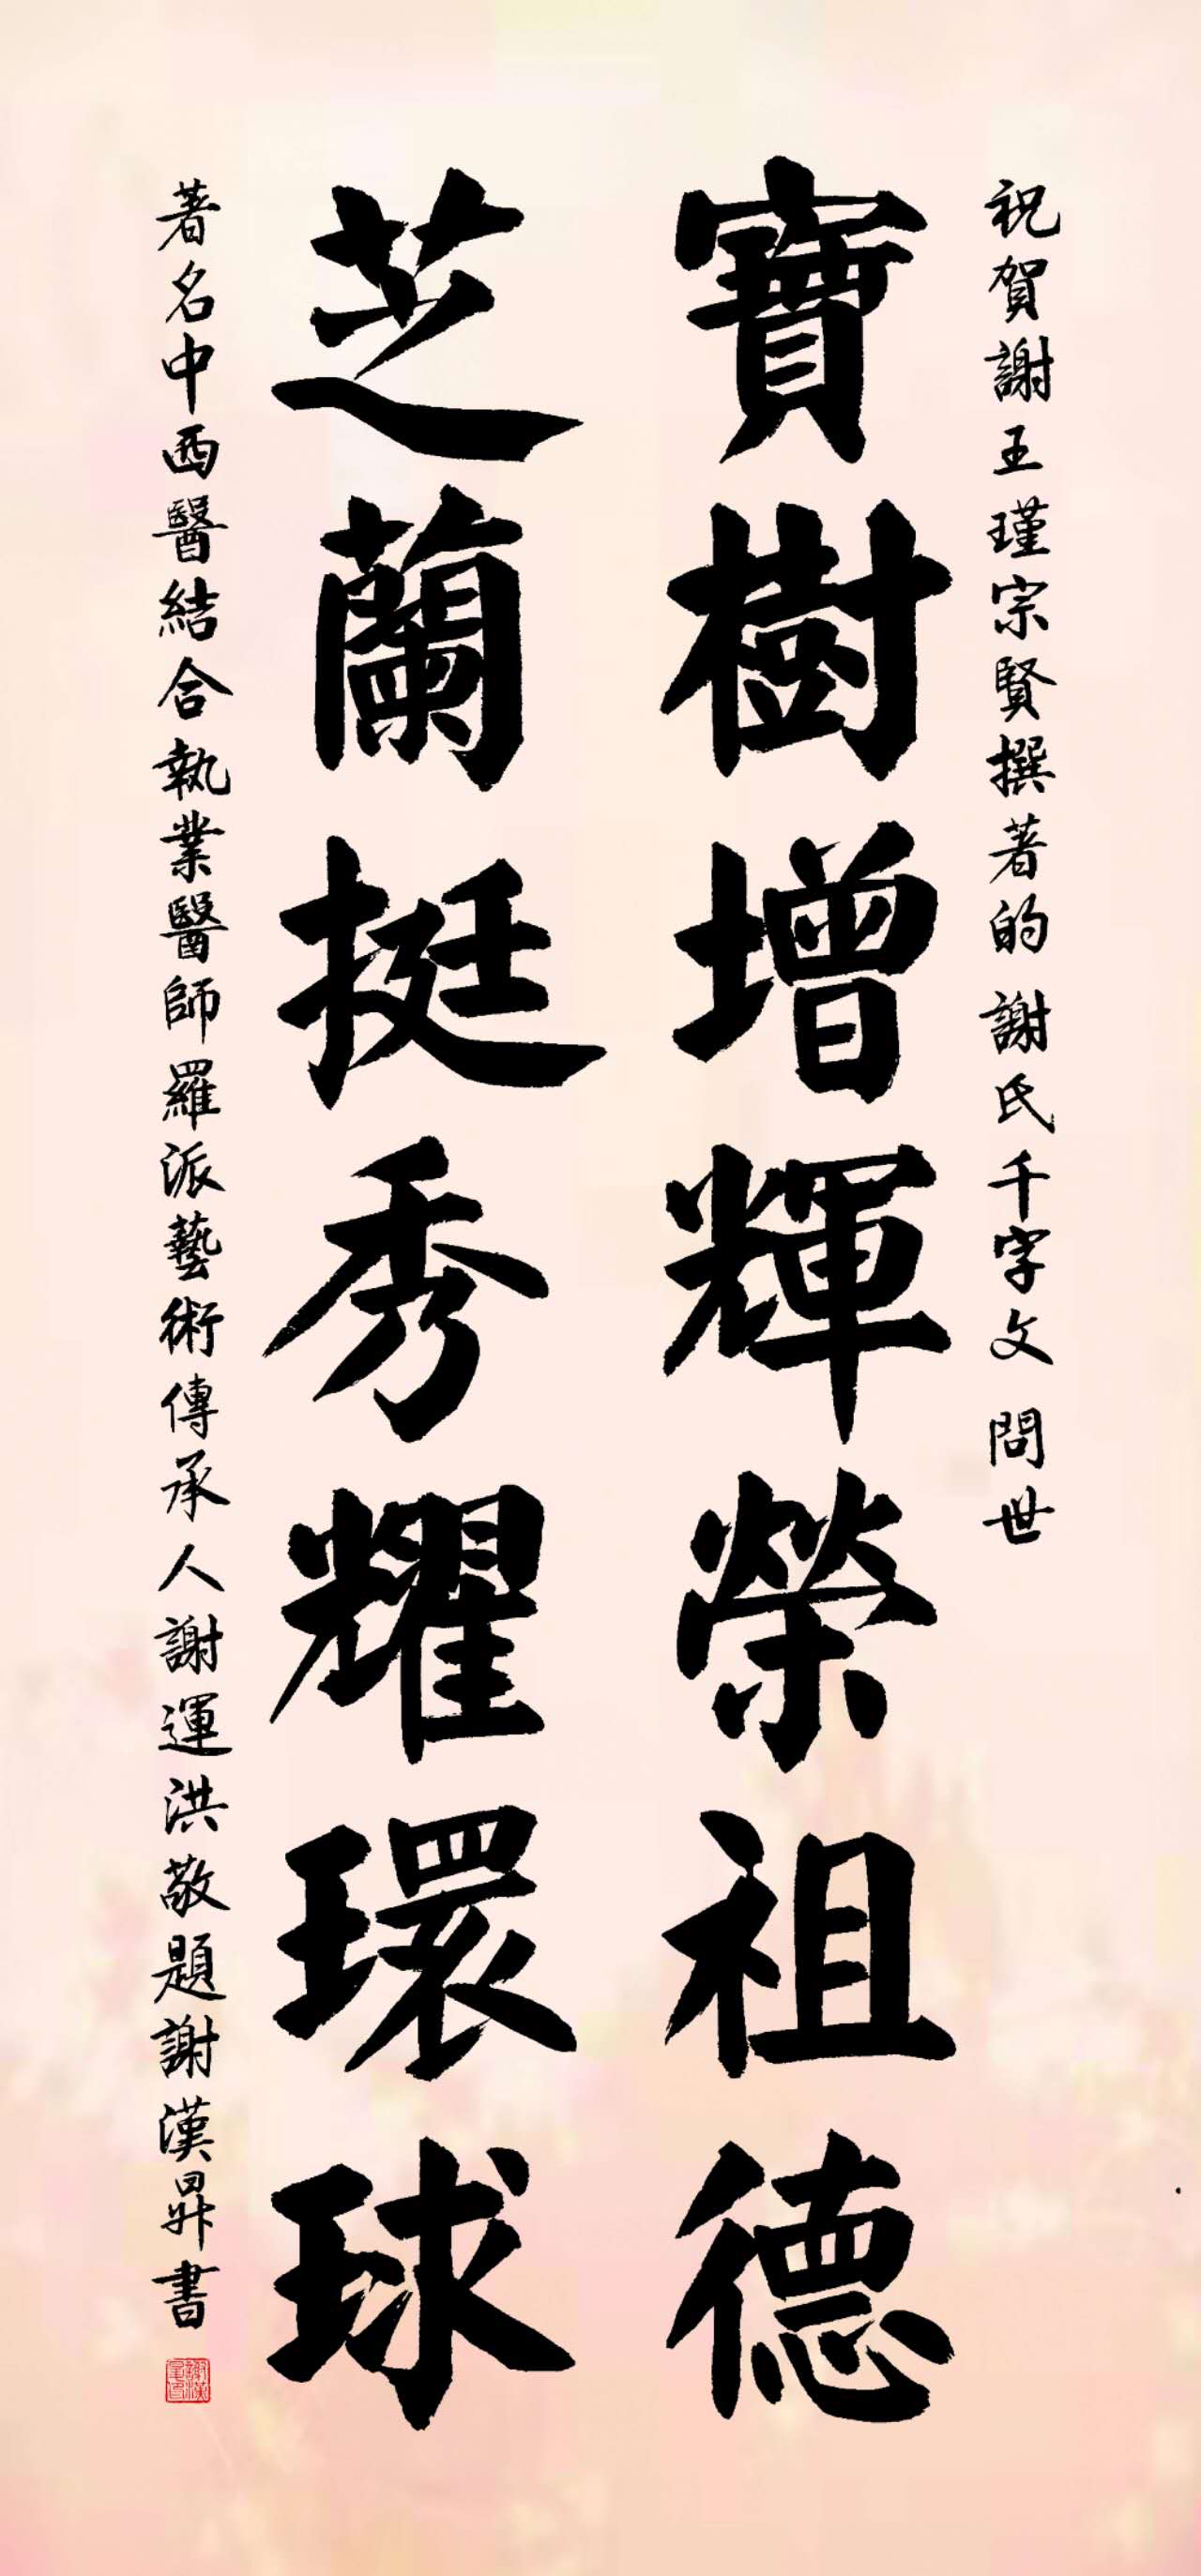 祝賀謝王瑾宗賢撰著的 謝氏千字文 問世
寶樹增輝榮祖德
芝蘭挺秀耀環球
著名中西醫結合執業醫師羅派藝術傳承人謝運洪敬題謝漢昇書